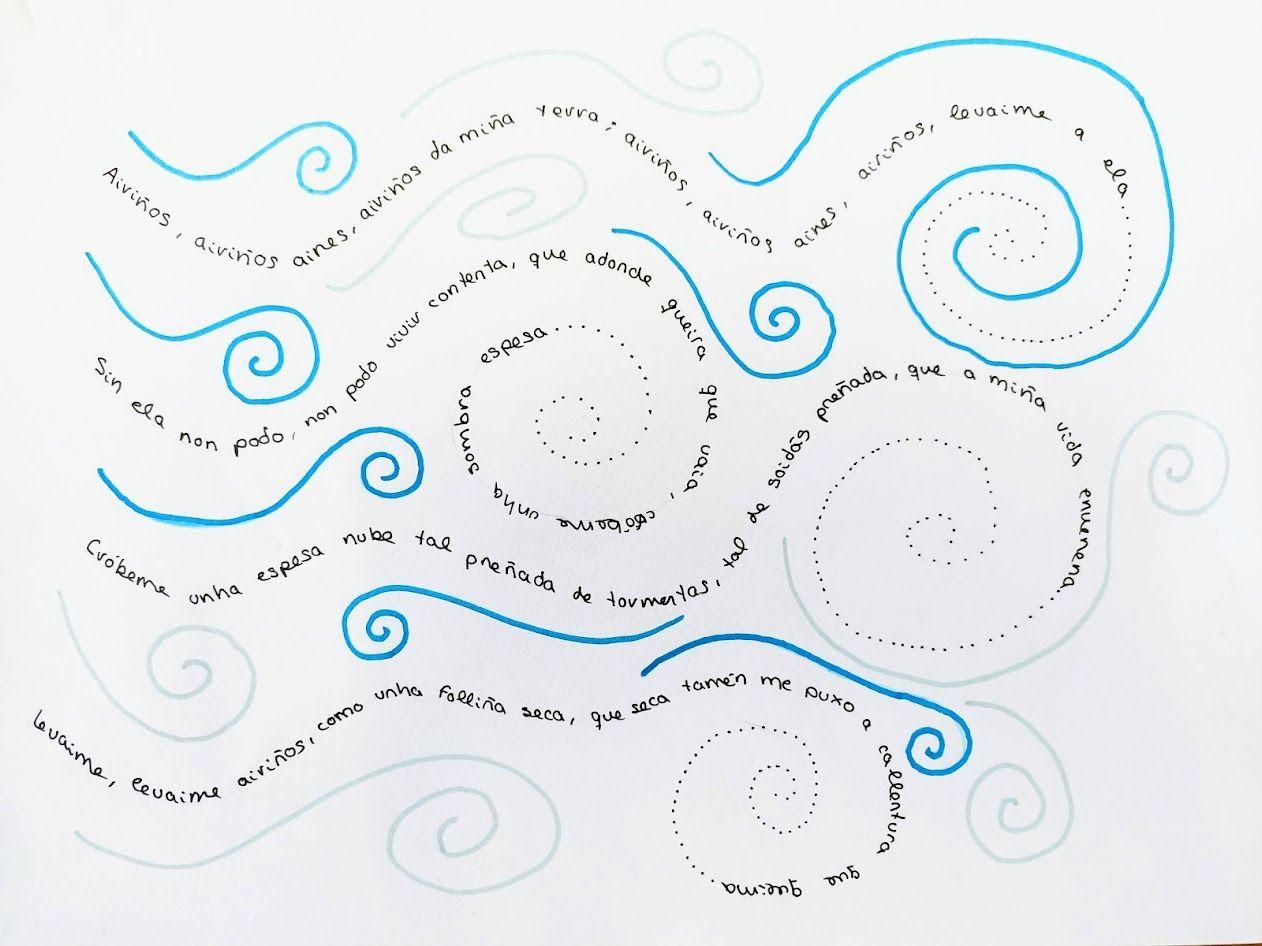 Airiños, airiños aires, airiños da miña terra; airiños, airiños aires, airiños, levaime a ela......
Sin ela non podo, non podo vivir contenta, que adonde queira que vaia, cróbeme unha sombra espesa......
Cróbeme unha espesa nube tal preñada de tormentas, tal de soidás preñada, que a miña vida envenena......
levaime, levaime airiños, como unha folliña seca, que seca tamén me puxo a callentura que queima......